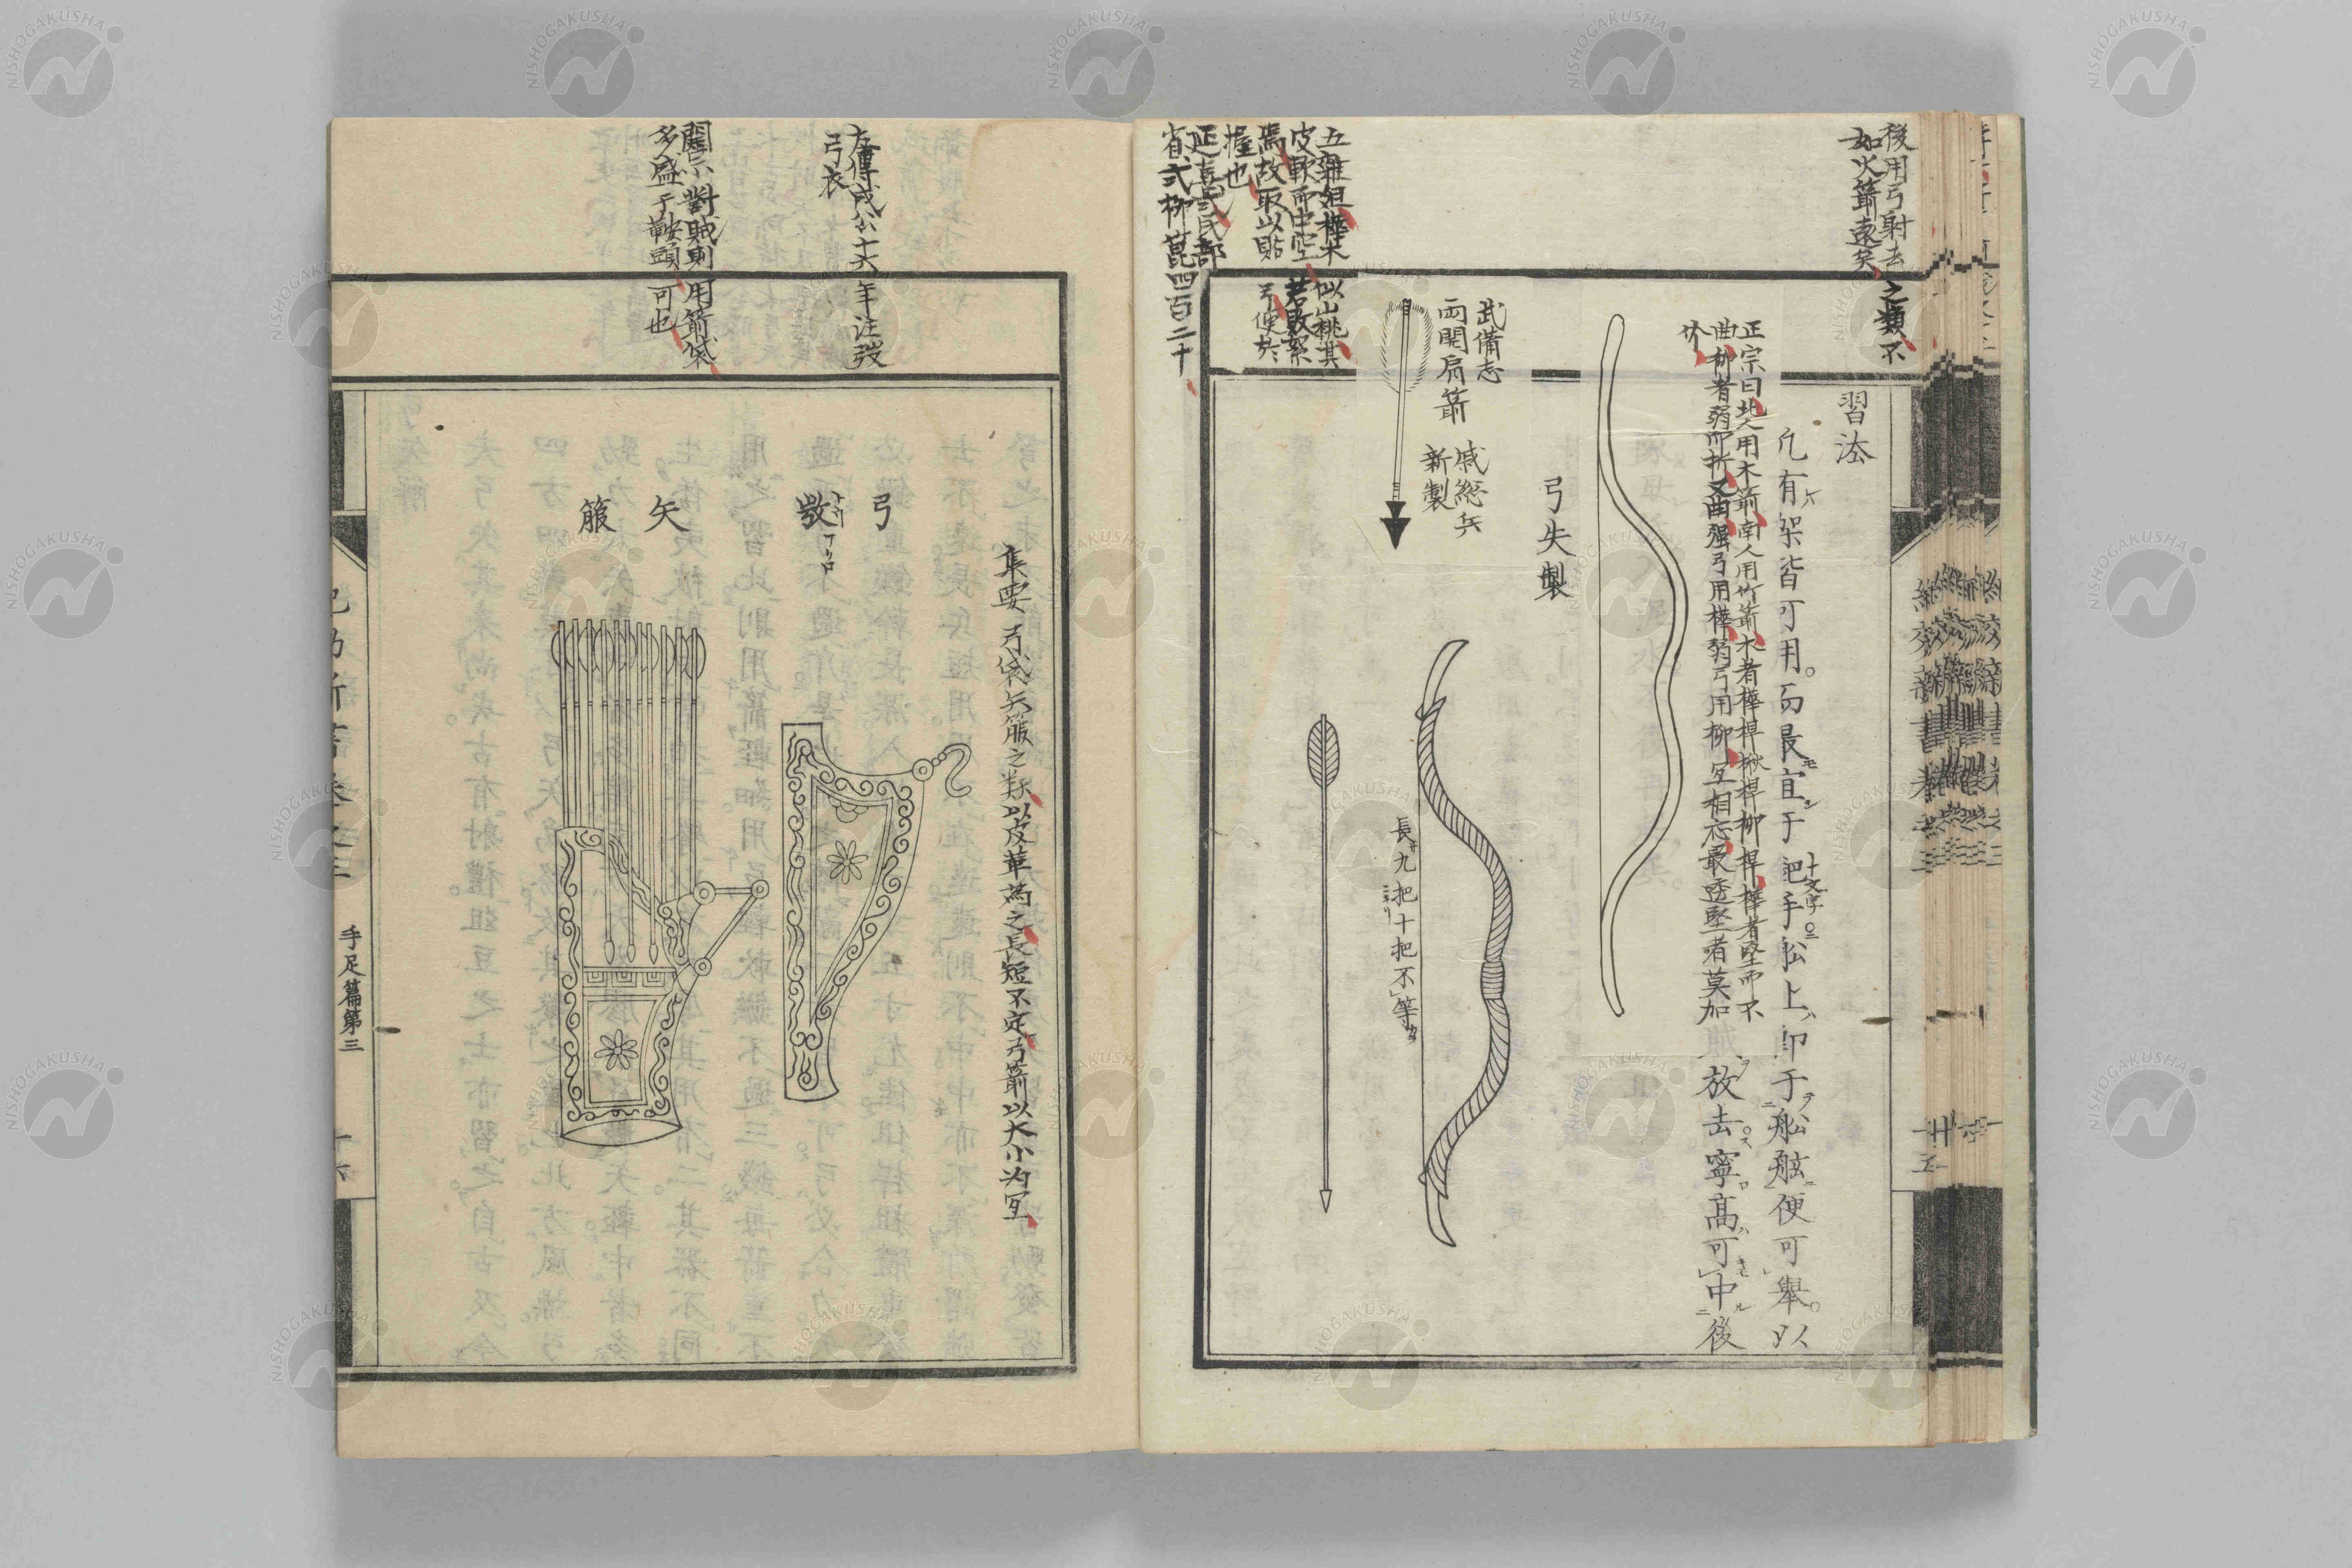 後用弓射去之類不
如火箭遠矣
習法
凢有架皆可用而最宜于把手舩上卽于舩舷便可舉以
放去寧高可中後
正宗曰北人用木箭南人用竹箭木者樺桿楸桿柳桿樺者堅而不
曲柳者弱而折又曲强弓用樺弱弓用柳宐相応最透堅者莫加
竹
弓失製
武備志
両開肩箭
戚総兵
新製
長九把十把不等
五雜俎樺木似山桃其
皮軟而中空若敗絮
焉故取以貼弓便於
握也
延喜式民部
省式柳菎四百二十
左傳成公十六年注弢
弓衣
闇示對賊則用箭袋
多盛于鞍頭可也
集要 弓袋矢箙之類以皮革為之長短不定弓箭以大小为宐
弓
矢
箙
紀効新書卷之三
手足篇第三
十六
廿五
NISHOGAKUSHA